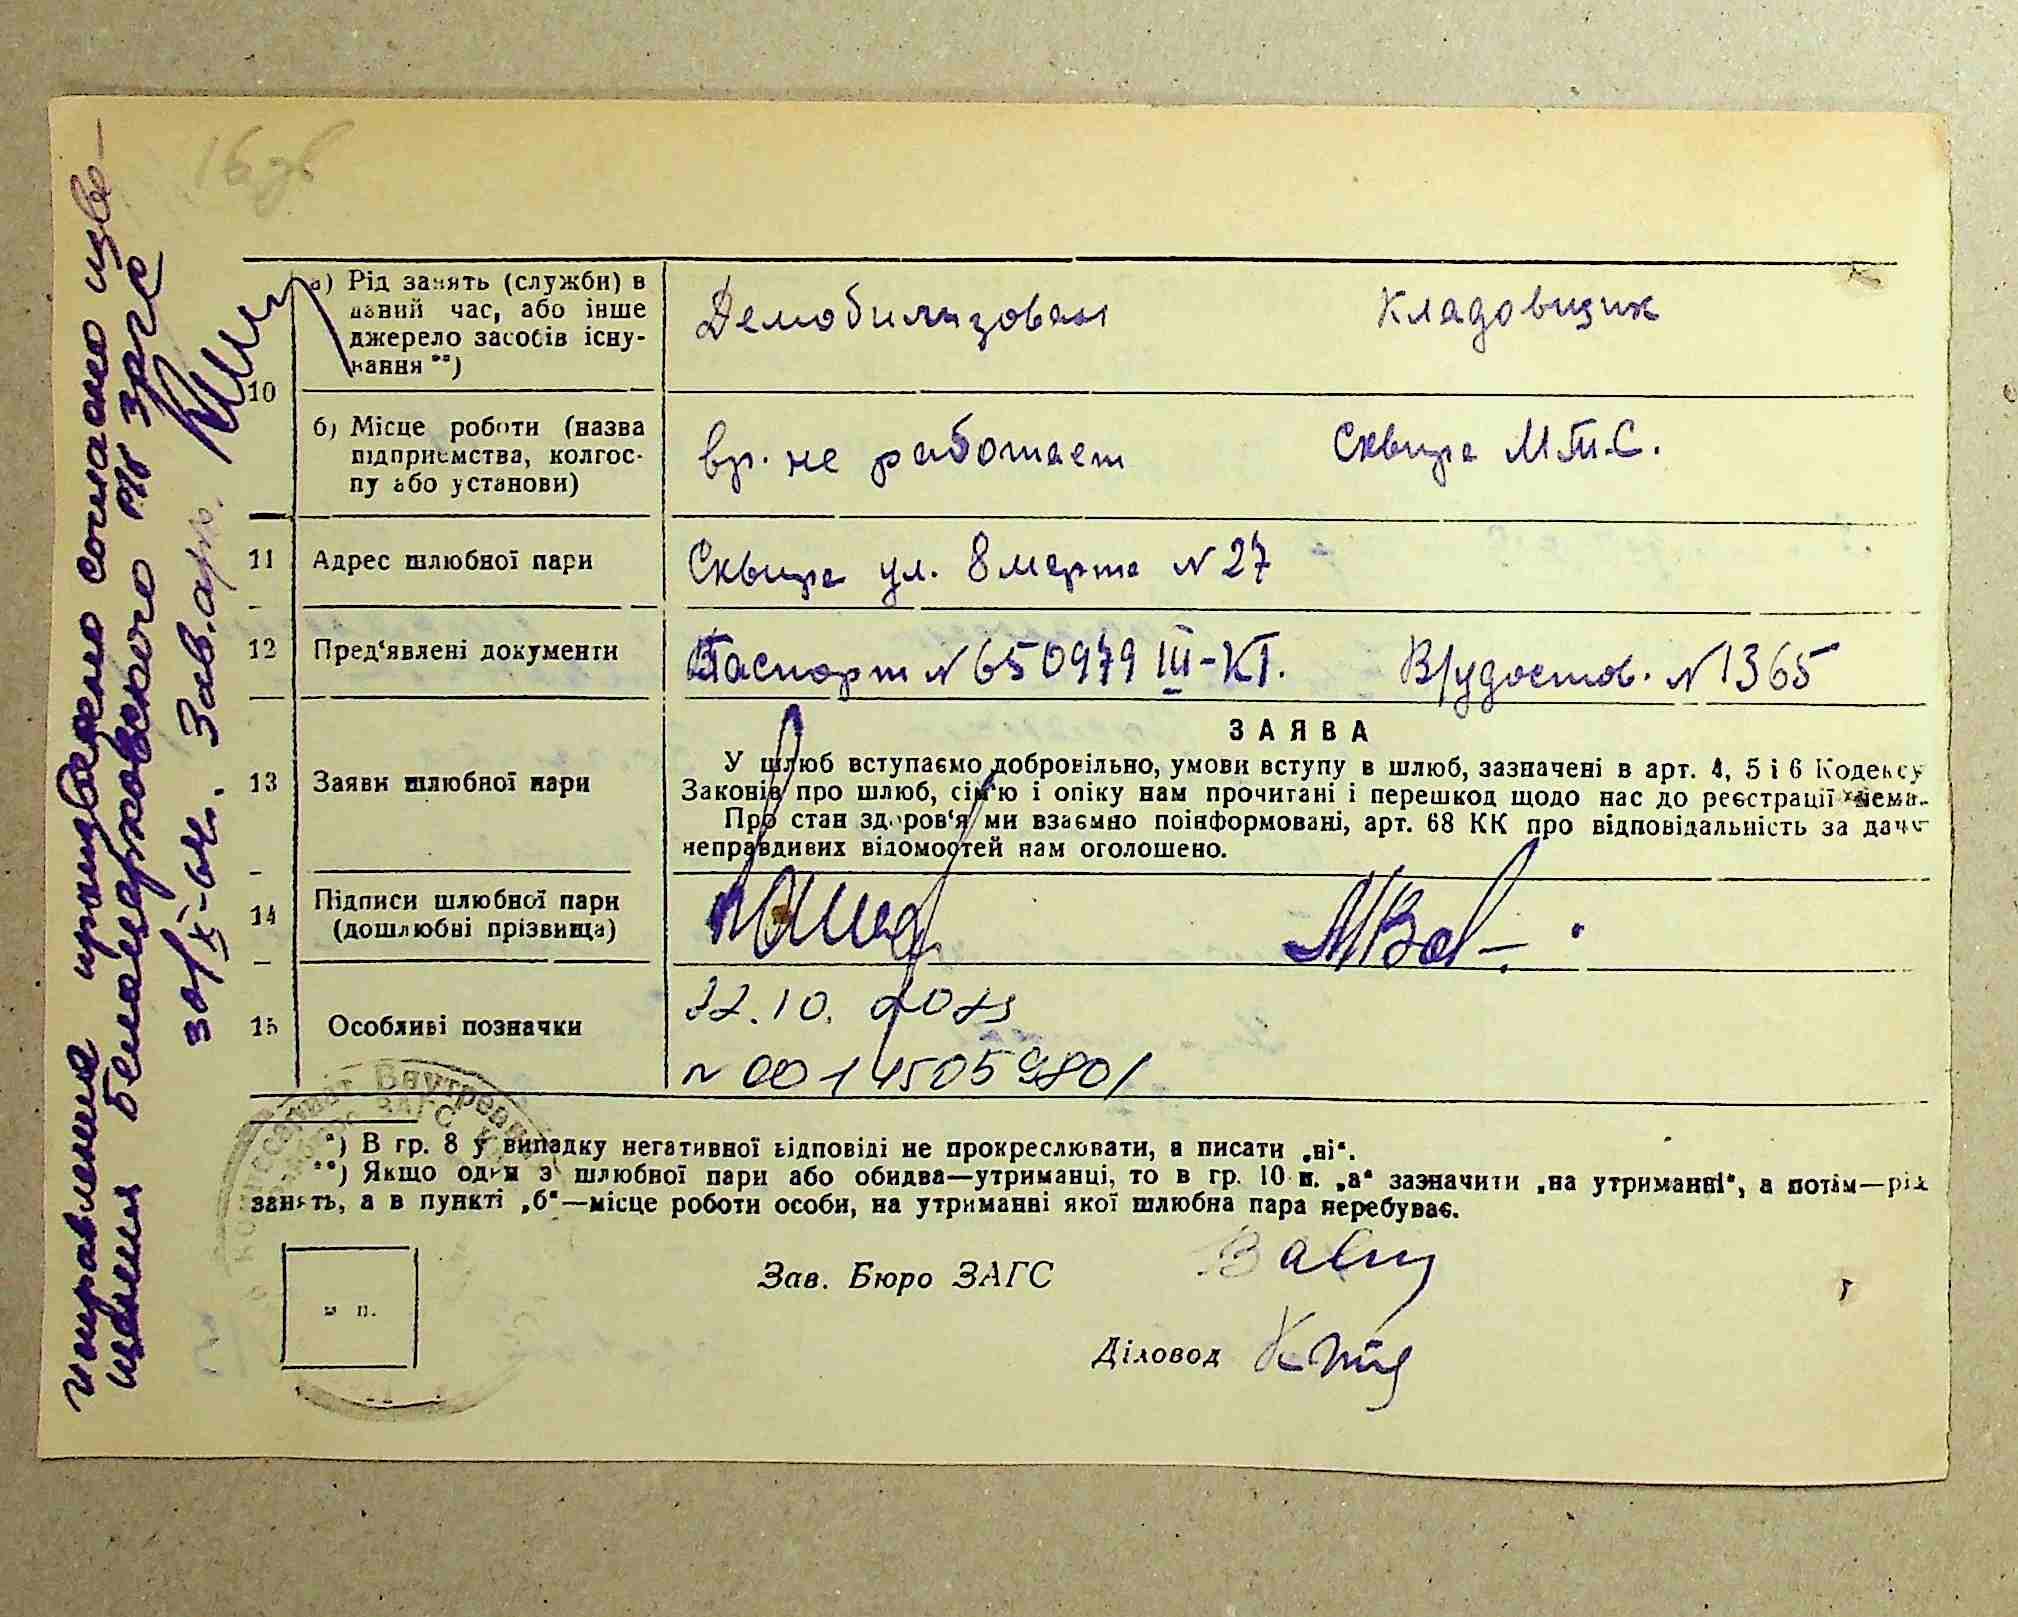 16 зв
исправления произведено согласно изве-
щения Белоцерковского р/б ЗАГС
30/X-64. Зав. арх.
10
а) Рід занять (служби) в
даний час, або інше
джерело засобів існу-
вання **)
Демобилизован
Кладовщик
б) Місце роботи (назва
підприємства, колгос-
пу або установи)
вр. не работает
Сквира М.Т.С.
11 Адрес шлюбної пари
Сквира ул. 8 марта N 27
12 Пред'явлені документи
Паспорт N 650979 III-КГ. В/удостов. N 1365
13 Заяви шлюбної пари
ЗАЯВА
У шлюб вступаємо добровільно, умови вступу в шлюб, зазначені в арт. 4, 5 і 6 Кодексу
Законів про шлюб, сім'ю і опіку нам прочитані і перешкод щодо нас до реєстрації нема.
Про стан здоров'я ми взаємно поінформовані, арт. 68 КК про відповідальність за дачу
неправдивих відомостей нам оголошено.
14 Підписи шлюбної пари
(дошлюбні прізвища)
15 Особливі позначки
22.10.
N 00145059801
*) В гр. 8 у випадку негативної відповіді не прокреслювати, а писати „ні“.
**) Якщо один з шлюбної пари або обидва—утриманці, то в гр. 10 п. „а“ зазначити „на утриманні“, а потім—рід
занять, а в пункті „б“—місце роботи особи, на утриманні якої шлюбна пара перебуває.
м п.
Зав. Бюро ЗАГС
Діловод